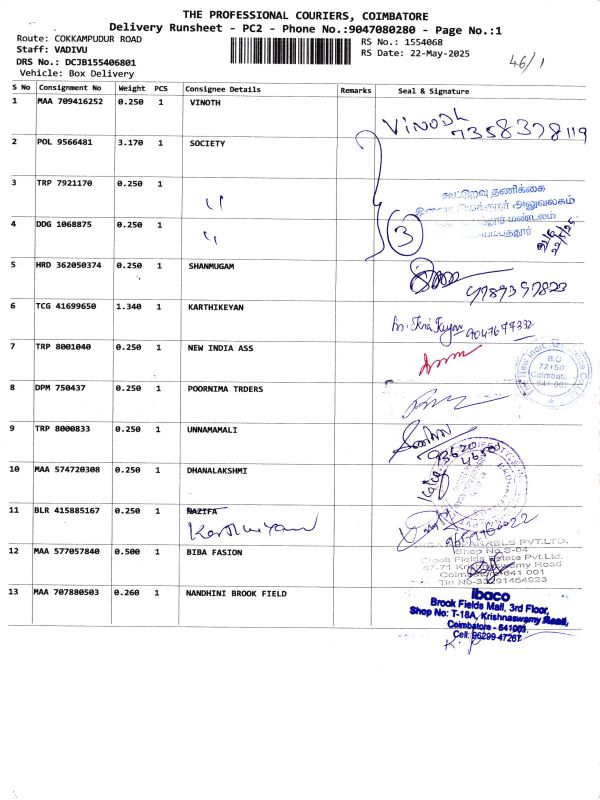 THE PROFESSIONAL COURIERS, COIMBATORE
Delivery Runsheet - PC2 - Phone No.:9047080280 - Page No.:1
Route: COKKAMPUDUR ROAD
Staff: VADIVU
DRS No.: DCJB155406801
Vehicle: Box Delivery
RS No.: 1554068
RS Date: 22-May-2025
46/1
S No Consignment No Weight PCS Consignee Details Remarks Seal & Signature
1 MAA 709416252 0.250 1 VINOTH
VINODH
7358378119
2 POL 9566481 3.170 1 SOCIETY
3 TRP 7921170 0.250 1 "
கூட்டுறவு தணிக்கை
அலுவலகம்
மண்டலம்
4 DDG 1068875 0.250 1 "
3
22/5/25
5 HRD 362050374 0.250 1 SHANMUGAM
9789397823
6 TCG 41699650 1.340 1 KARTHIKEYAN
9047677332
7 TRP 8001040 0.250 1 NEW INDIA ASS
B.O
72150
Coimbatore
641 002
8 DPM 750437 0.250 1 POORNIMA TRDERS
9 TRP 8000833 0.250 1 UNNAMAMALI
10 MAA 574720308 0.250 1 DHANALAKSHMI
11 BLR 415885167 0.250 1 RAZIFA
Karthikeyan
9659960022
12 MAA 577057840 0.500 1 BIBA FASION
PVT.LTD.
Shop No.S-04
Brook Fields Estate Pvt.Ltd.
67-71 Krishnaswamy Road
Coimbatore-641 001
13 MAA 707880503 0.260 1 NANDHINI BROOK FIELD
ibaco
Brook Fields Mall, 3rd Floor,
Shop No: T-18A, Krishnaswamy Road,
Coimbatore - 641001
Cell: 96299 47267